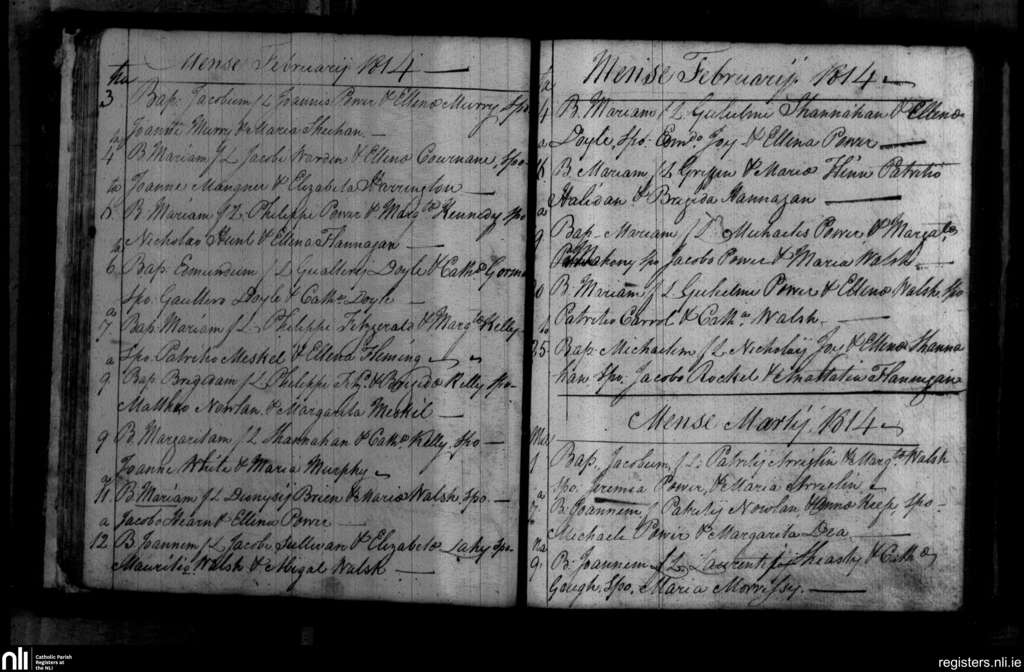 Mense Februarij 1814
3 Bap. Jacobum f L Joannis Power & Ellenæ Murry Spo
Joanne Murry & Maria Sheehan
4 B Mariam f L Jacobi Warden & Ellenæ Cournane, Spo
Joanne Mangner & Elizabeta Harrington
5 B Mariam f L Philippi Power & Margtæ Kennedy Spo
Nicholas Hunt & Ellena Flannagan
6 Bap. Edmundum f L Gualteri Doyle & Cathæ Gorman
Spo. Gaultero Doyle & Catha Doyle
7 Bap Mariam f L Philippi Fitzgerald & Margtæ Kelly
Spo. Patritio Meskel & Ellena Fleming
9 Bap Brigidam f L Philippi & Brigidæ Kelly Spo
Mattheo Nowlan & Margarita Meskil
9 B. Margaritam f L Shannahan & Cathæ Kelly. Spo
Joanne White & Maria Murphy
11 B Mariam f L Dionysij Brien & Mariæ Walsh, Spo.
Jacobo Hearn & Ellena Power
12 B Joannem f L Jacobi Sullivan & Elizabetæ Lahy Spo
Mauritio Walsh & Abigal Walsh
Mense Februarij 1814
B. Mariam f L Gulielmi Shannahan & Ellenæ
Doyle, Spo. Edmdo Joy & Ellena Power
B. Mariam f L Griffin & Mariæ Flinn Patritio
Halidan & Brigida Hannagan
Bap. Mariam f L Michaelis Power & Margatæ
Spo Jacobo Power & Maria Walsh
B. Mariam f L Gulielmi Power & Ellenæ Walsh Spo
Patritio Carrol & Catha Walsh
25 Bap Michaelem f L Nicholaij Joy & Ellenæ Shanna
han Spo. Jacobo Rocket & Flannigan
Mense Martij 1814
1 Bap. Jacobum f L Patritij & Margtæ Walsh
Spo. Jeremia Power, & Maria
7 B. Joannem f Patritij Nowlan & Annæ Keef, Spo
Michaele Power & Margarita Dea
9 B. Joannem f L Laurentij Sheashy & Cathæ
Gough. Spo. Maria Morrissy.
nli
Catholic Parish
Registers at
the NLI
registers.nli.ie